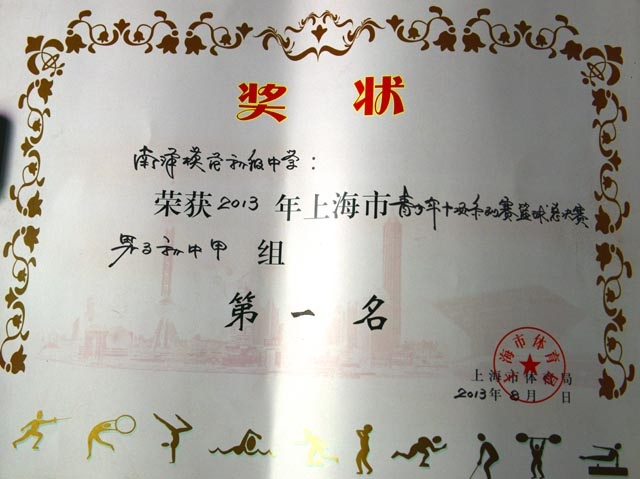 奖状
南洋模范初级中学：
荣获2013年上海市青少年十项系列赛篮球总决赛
男子初中甲组
第一名
上海市体育局
上海市体育局
2013年8月 日